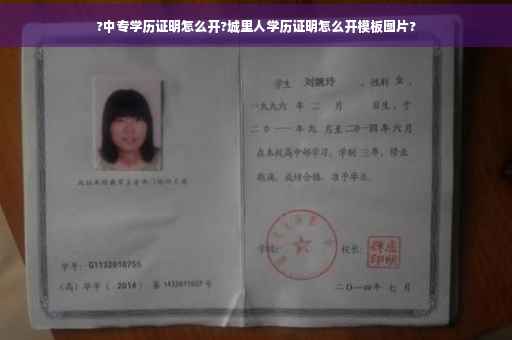 ?中专学历证明怎么开?城里人学历证明怎么开模板图片?
学生 刘婉玲 ，性别 女 ，
一九九六 年 二 月 日生，于
二〇一一年九 月至二〇一四年 六 月
在本校高中部学习，学制 三年，修业
期满，成绩合格，准予毕业。
学校： 校长：
学号： G1132010755
(高) 毕字 ( 2014 ) 第 1432011027 号
二〇一四年 七 月